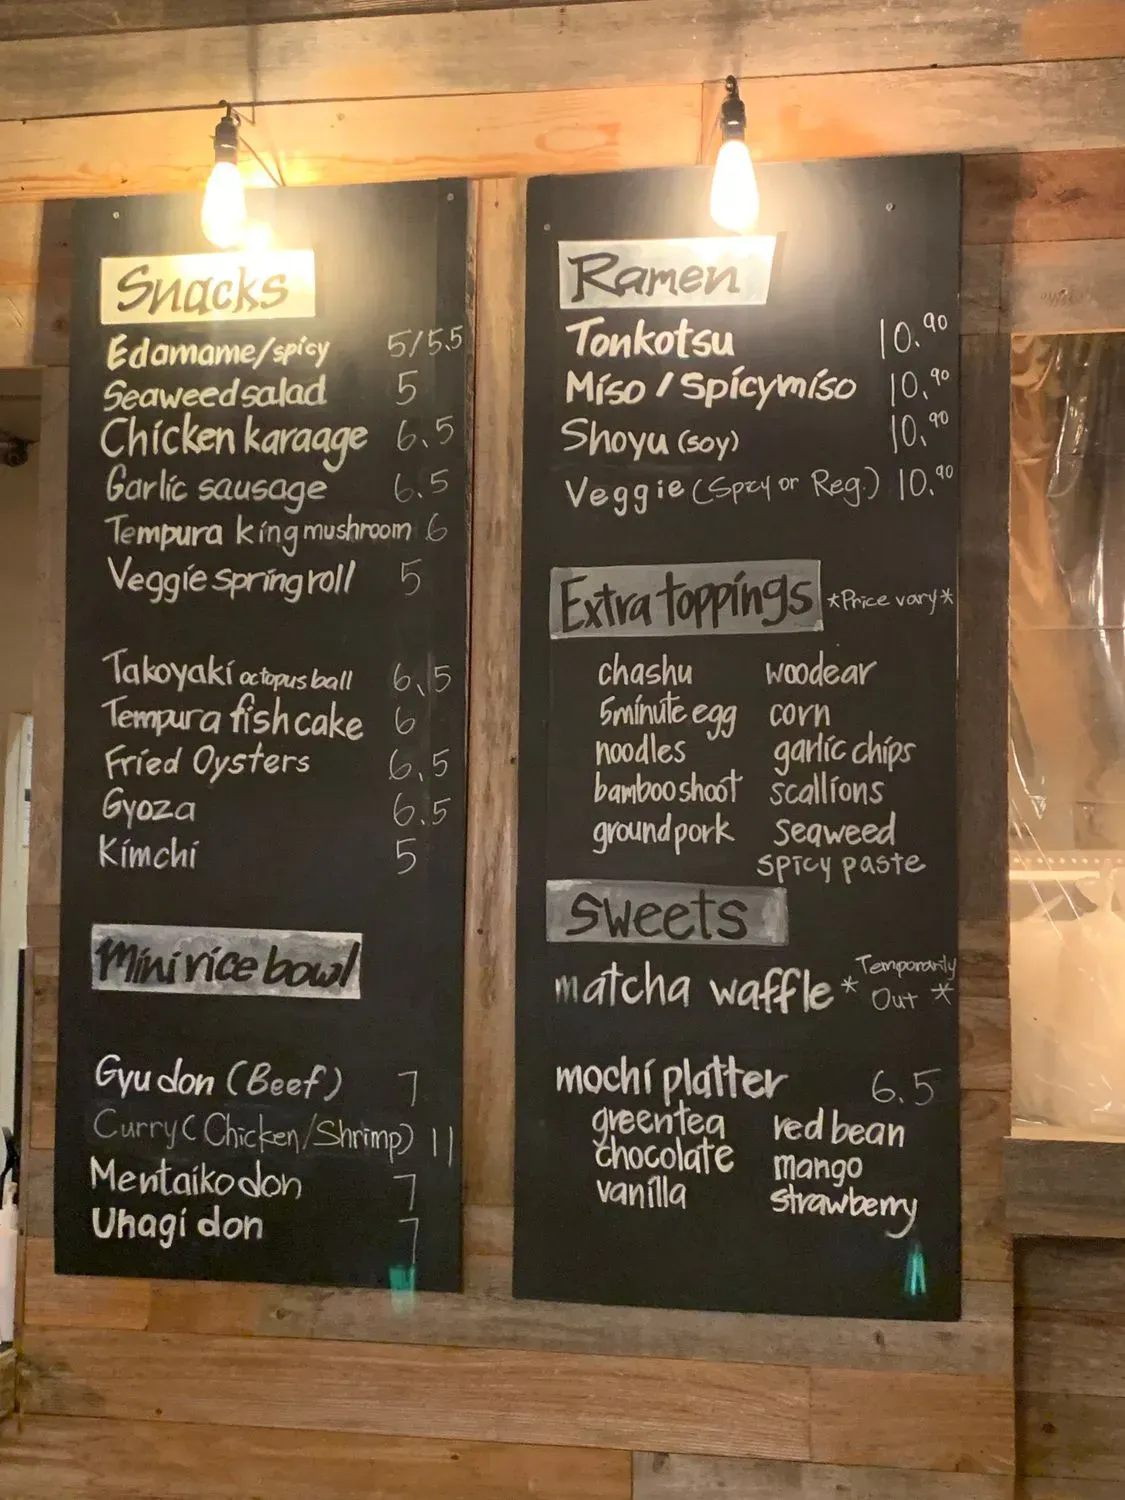 Snacks
Edamame/spicy 5/5.5
Seaweed salad 5
Chicken karaage 6.5
Garlic sausage 6.5
Tempura king mushroom 6
Veggie spring roll 5
Takoyaki octopus ball 6.5
Tempura fish cake 6
Fried Oysters 6.5
Gyoza 6.5
Kimchi 5
Mini rice bowl
Gyu don (Beef) 7
Curry (Chicken/Shrimp) 11
Mentaiko don 7
Uhagi don 7
Ramen
Tonkotsu 10.90
Miso / Spicy miso 10.90
Shoyu (soy) 10.90
Veggie (Spicy or Reg.) 10.90
Extra toppings *Price vary*
chashu woodear
5 minute egg corn
noodles garlic chips
bamboo shoot scallions
ground pork seaweed
spicy paste
Sweets
matcha waffle * Temporarily
Out *
mochi platter 6.5
green tea red bean
chocolate mango
vanilla strawberry